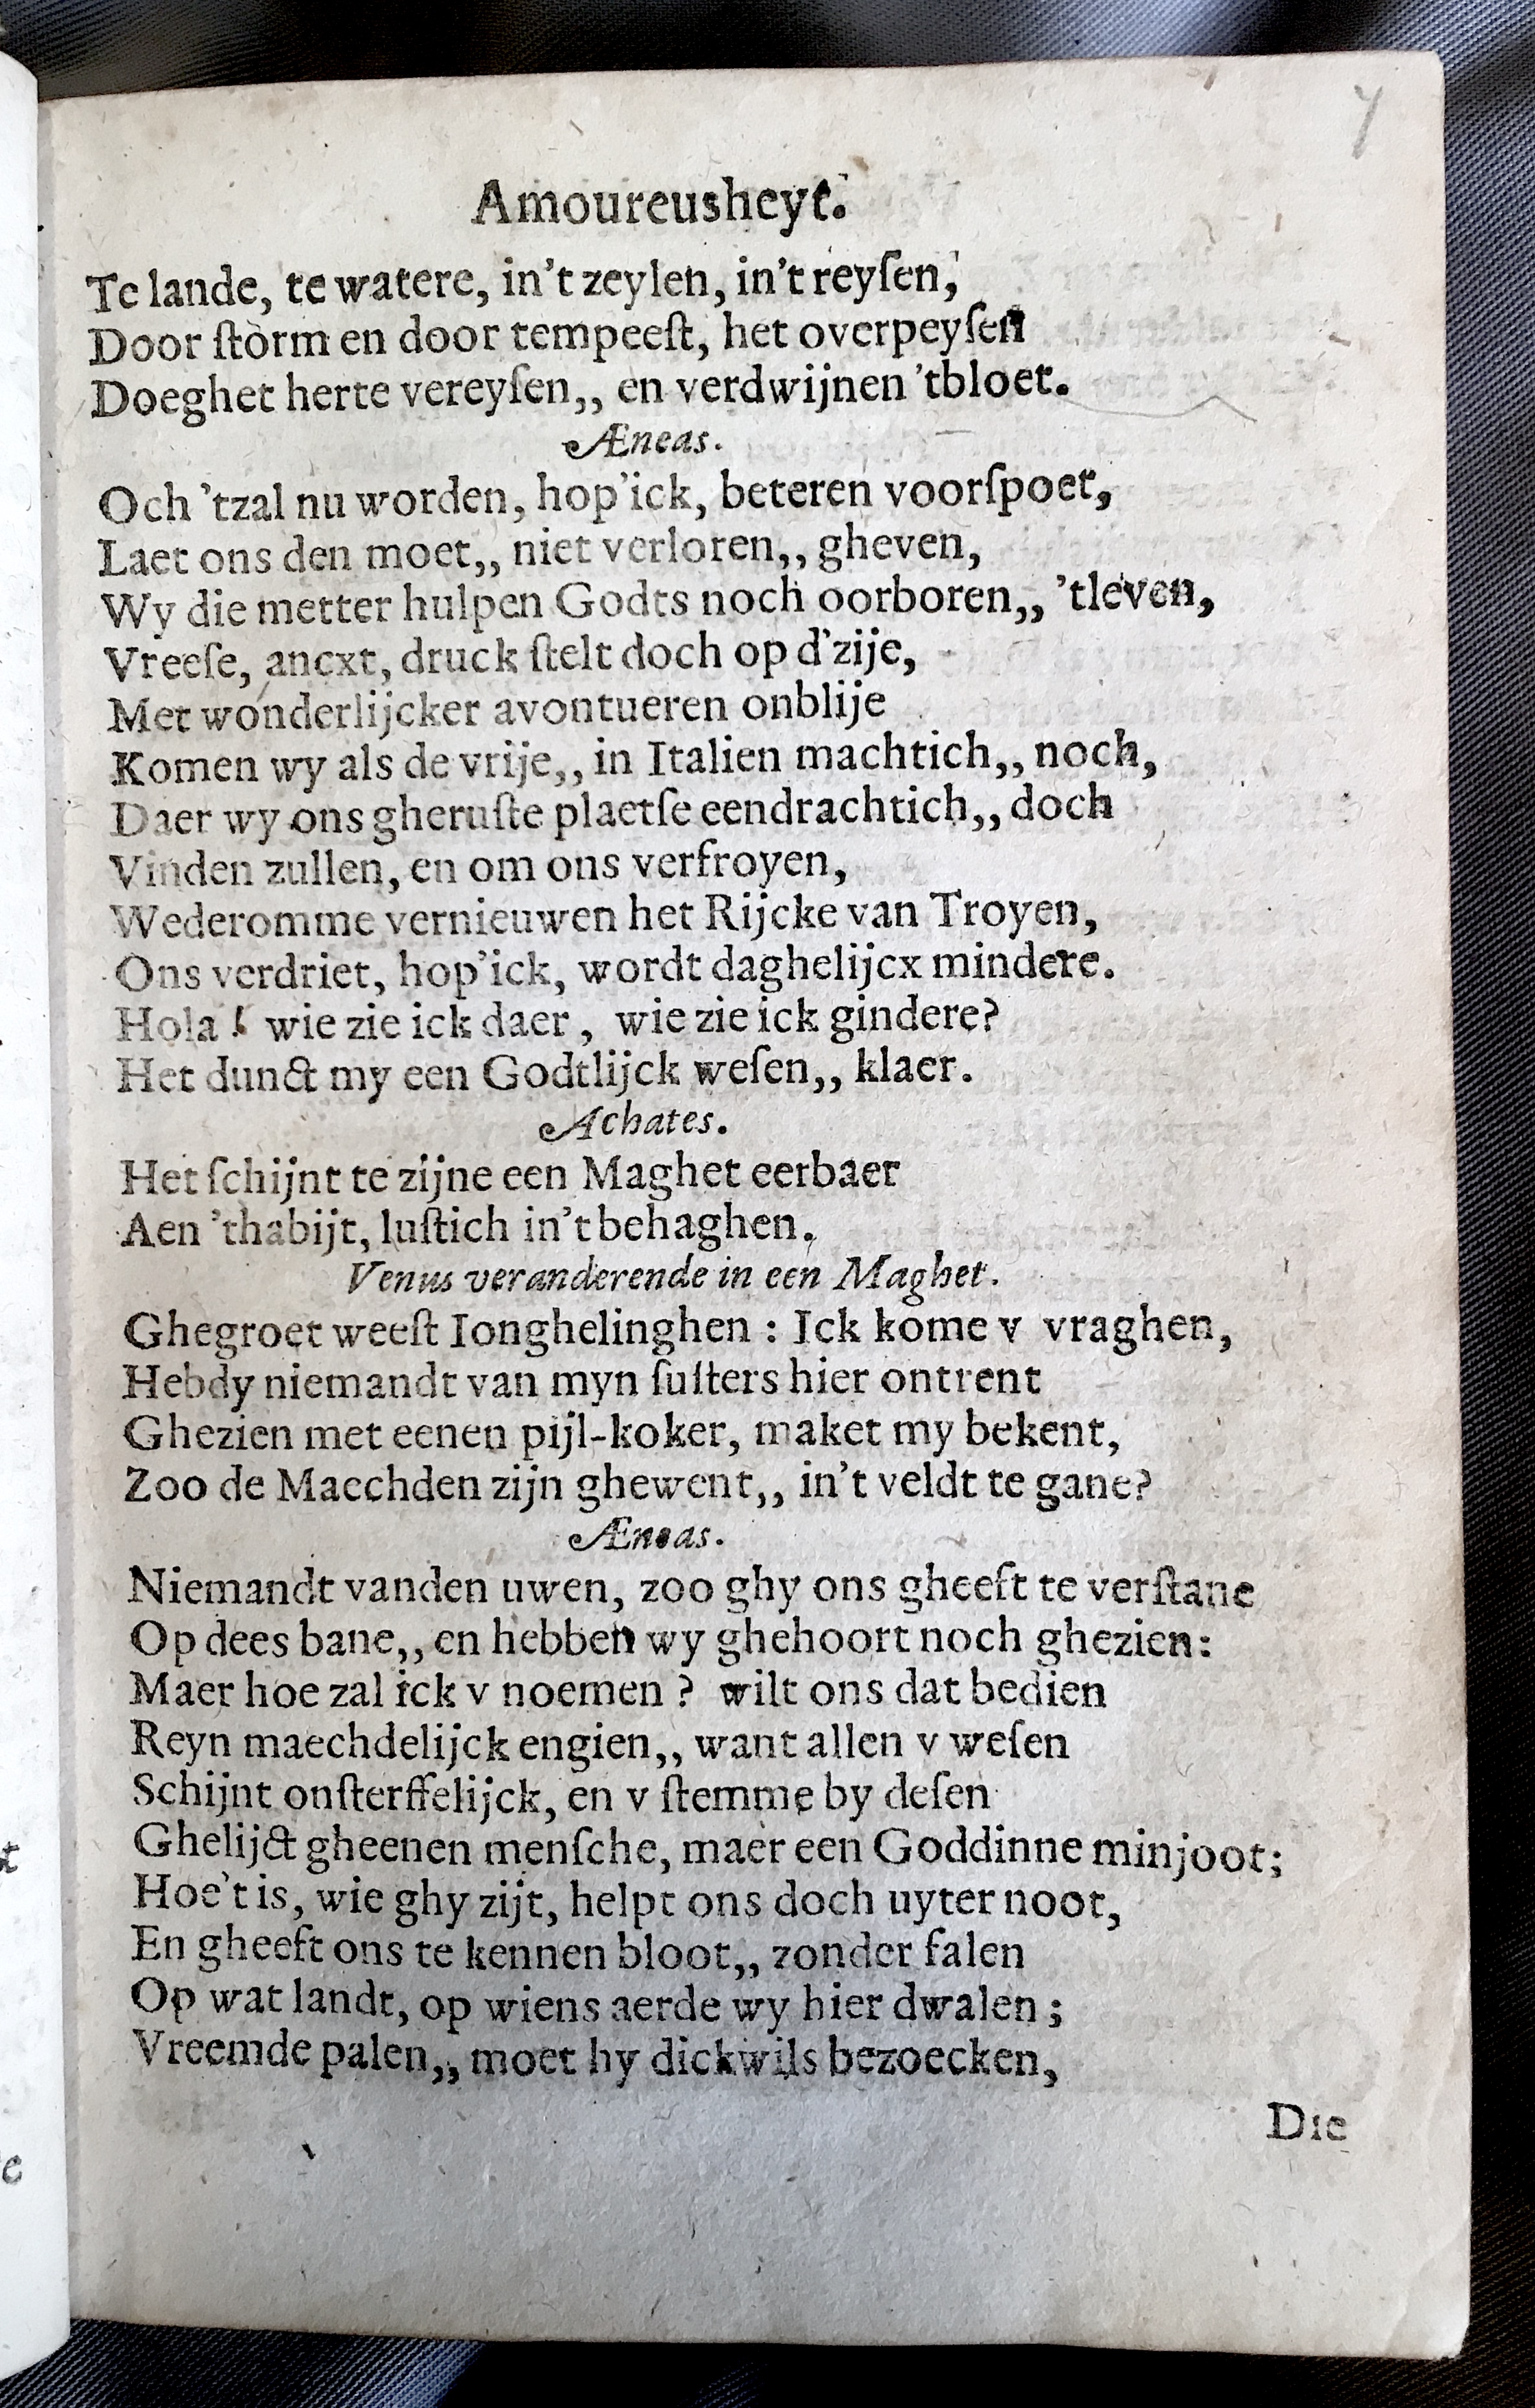 7
Amoureusheyt.
Te lande, te watere, in't zeylen, in't reyſen,
Door ſtorm en door tempeeſt, het overpeyſen
Doeghet herte vereyſen,, en verdwijnen 'tbloet.
Æneas.
Och 'tzal nu worden, hop'ick, beteren voorſpoet,
Laet ons den moet,, niet verloren,, gheven,
Wy die metter hulpen Godts noch oorboren,, 'tleven,
Vreeſe, ancxt, druck ſtelt doch op d'zije,
Met wonderlijcker avontueren onblije
Komen wy als de vrije,, in Italien machtich,, noch,
Daer wy ons gheruſte plaetſe eendrachtich,, doch
Vinden zullen, en om ons verfroyen,
Wederomme vernieuwen het Rijcke van Troyen,
Ons verdriet, hop'ick, wordt daghelijcx mindere.
Hola! wie zie ick daer, wie zie ick gindere?
Het dunct my een Godtlijck weſen,, klaer.
Achates.
Het ſchijnt te zijne een Maghet eerbaer
Aen 'thabijt, luſtich in't behaghen.
Venus veranderende in een Maghet.
Ghegroet weeſt Ionghelinghen: Ick kome v vraghen,
Hebdy niemandt van myn ſuſters hier ontrent
Ghezien met eenen pijl-koker, maket my bekent,
Zoo de Maechden zijn ghewent,, in't veldt te gane?
Æneas.
Niemandt vanden uwen, zoo ghy ons gheeft te verſtane
Op dees bane,, en hebben wy ghehoort noch ghezien:
Maer hoe zal ick v noemen? wilt ons dat bedien
Reyn maechdelijck engien,, want allen v weſen
Schijnt onſterffelijck, en v ſtemme by deſen
Ghelijct gheenen menſche, maer een Goddinne minjoot;
Hoe't is, wie ghy zijt, helpt ons doch uyter noot,
En gheeft ons te kennen bloot,, zonder falen
Op wat landt, op wiens aerde wy hier dwalen;
Vreemde palen,, moet hy dickwils bezoecken,
Die